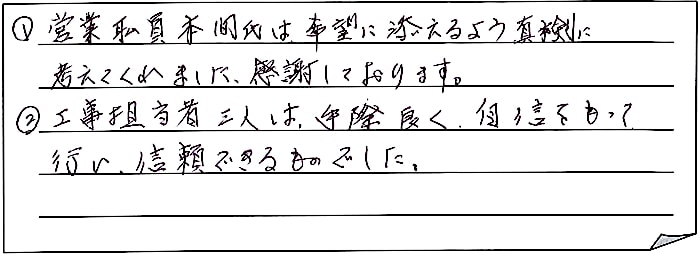 ① 営業社員本間氏は希望に添えるよう真検に
考えてくれました、感謝しております。
② 工事担当者三人は、手際良く、自信をもって
行い、信頼できるものでした。